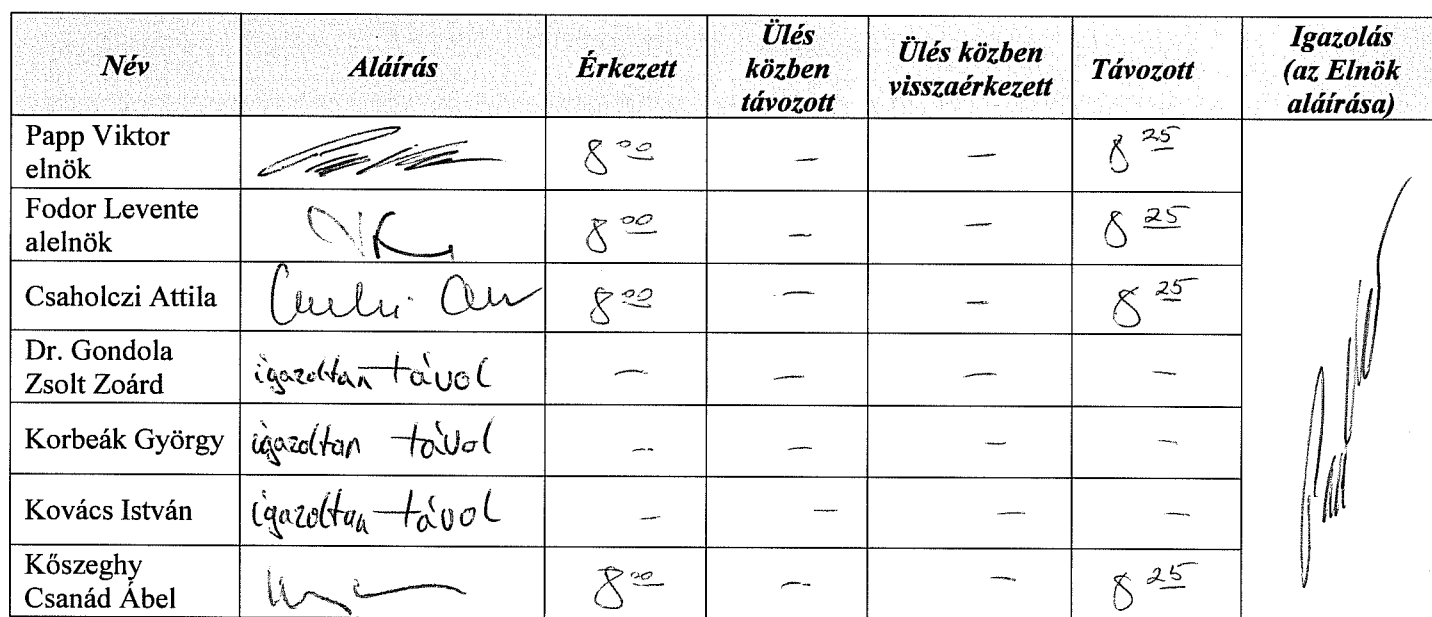 Név Aláírás Érkezett Ülés közben távozott Ülés közben visszaérkezett Távozott Igazolás (az Elnök aláírása)
Papp Viktor elnök 8 00 – – 8 25
Fodor Levente alelnök 8 00 – – 8 25
Csaholczi Attila 8 00 – – 8 25
Dr. Gondola Zsolt Zoárd igazoltan távol – – – –
Korbeák György igazoltan távol – – – –
Kovács István igazoltan távol – – – –
Kőszeghy Csanád Ábel 8 00 – – 8 25